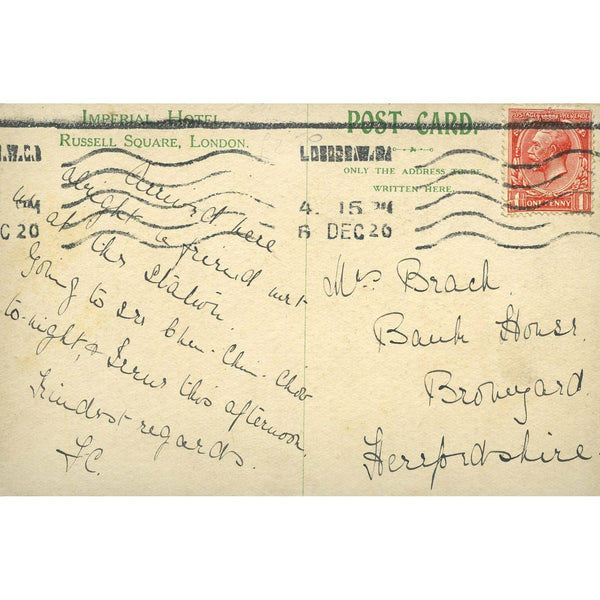 IMPERIAL HOTEL
RUSSELL SQUARE, LONDON.
POST CARD.
ONLY THE ADDRESS TO BE
WRITTEN HERE.
POSTAGE REVENUE
ONE PENNY
LONDON. W.C.1
4. 15 PM
6 DEC 20
.W.C.1
PM
C 20
Arrived here
alright & friend met
us at the station.
Going to see Chu. Chin. Chow
to-night, & Ierus this afternoon,
Kindest regards.
FC.
Mrs Brach.
Bank House.
Bromyard.
Herefordshire.